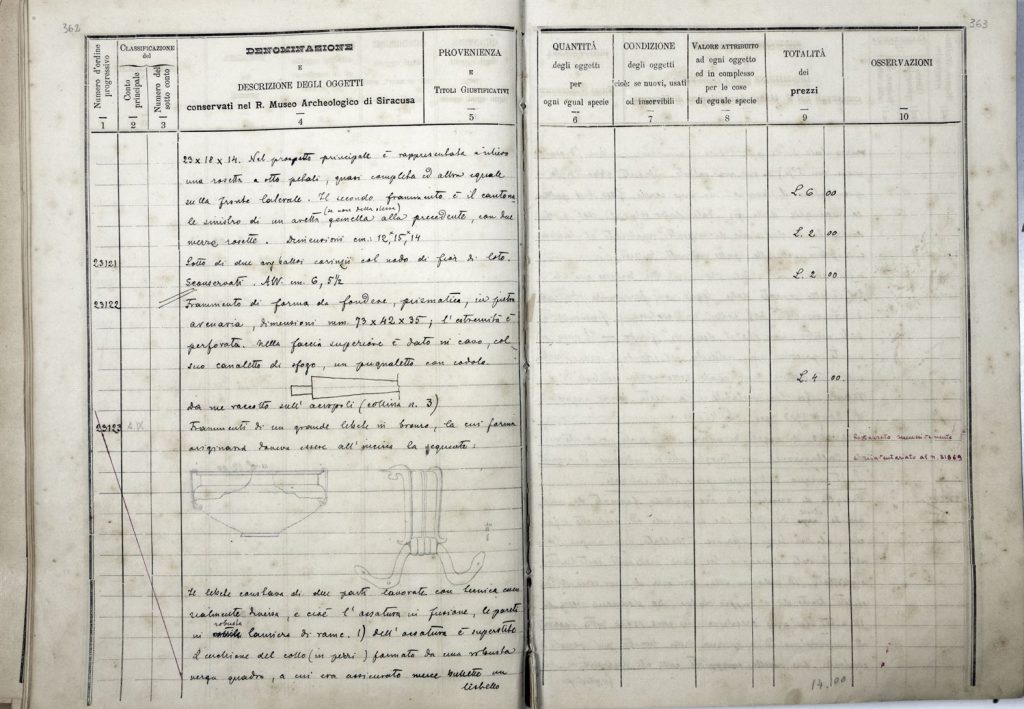 362
Numero d'ordine progressivo
CLASSIFICAZIONE del
Conto principale
Numero del sotto conto
DENOMINAZIONE
E
DESCRIZIONE DEGLI OGGETTI
conservati nel R. Museo Archeologico di Siracusa
PROVENIENZA
E
TITOLI GIUSTIFICATIVI
1 2 3 4 5
23 x 18 x 14. Nel prospetto principale è rappresentata a rilievo
una rosetta a otto petali, quasi completa ed altra eguale
sulla fronte laterale. Il secondo frammento è il cantona
le sinistro di un aretta (se non della stessa) gemella alla precedente, con due
mezze rosette. Dimensioni cm: 12 x 15 x 14
23121 Lotto di due aryballoi corinzii col nodo di fior di loto.
Sconservati. Alt. cm. 6, 5½
23122 Frammento di forma da fondere, prismatica, in pietra
arenaria, dimensioni mm. 73 x 42 x 35; l'estremità è
perforata. Nella faccia superiore è dato in cavo, col
suo canaletto di sfogo, un pugnaletto con codolo.
da me raccolto sull'acropoli (collina n. 3)
23123 Frammenti di un grande lebete in bronzo, la cui forma
originaria doveva essere all'incirca la seguente:
Il lebete constava di due parti lavorate con tecnica
realmente diversa, e cioè l'ossatura in fusione, le pareti
in robusta lamiera di rame. 1) dell'ossatura è superstite
il cerchione del collo (in pezzi) formato da una robusta
verga quadra, a cui era assicurato merce un
listello
363
QUANTITÀ
degli oggetti
per
ogni egual specie
CONDIZIONE
degli oggetti
cioè: se nuovi, usati
od inservibili
VALORE ATTRIBUITO
ad ogni oggetto
ed in complesso
per le cose
di eguale specie
TOTALITÀ
dei
prezzi
OSSERVAZIONI
6 7 8 9 10
L. 6 00
L. 2 00
L. 2 00
L. 4 00
Restaurato recentemente
e reinventariato al n. 31869
14.00